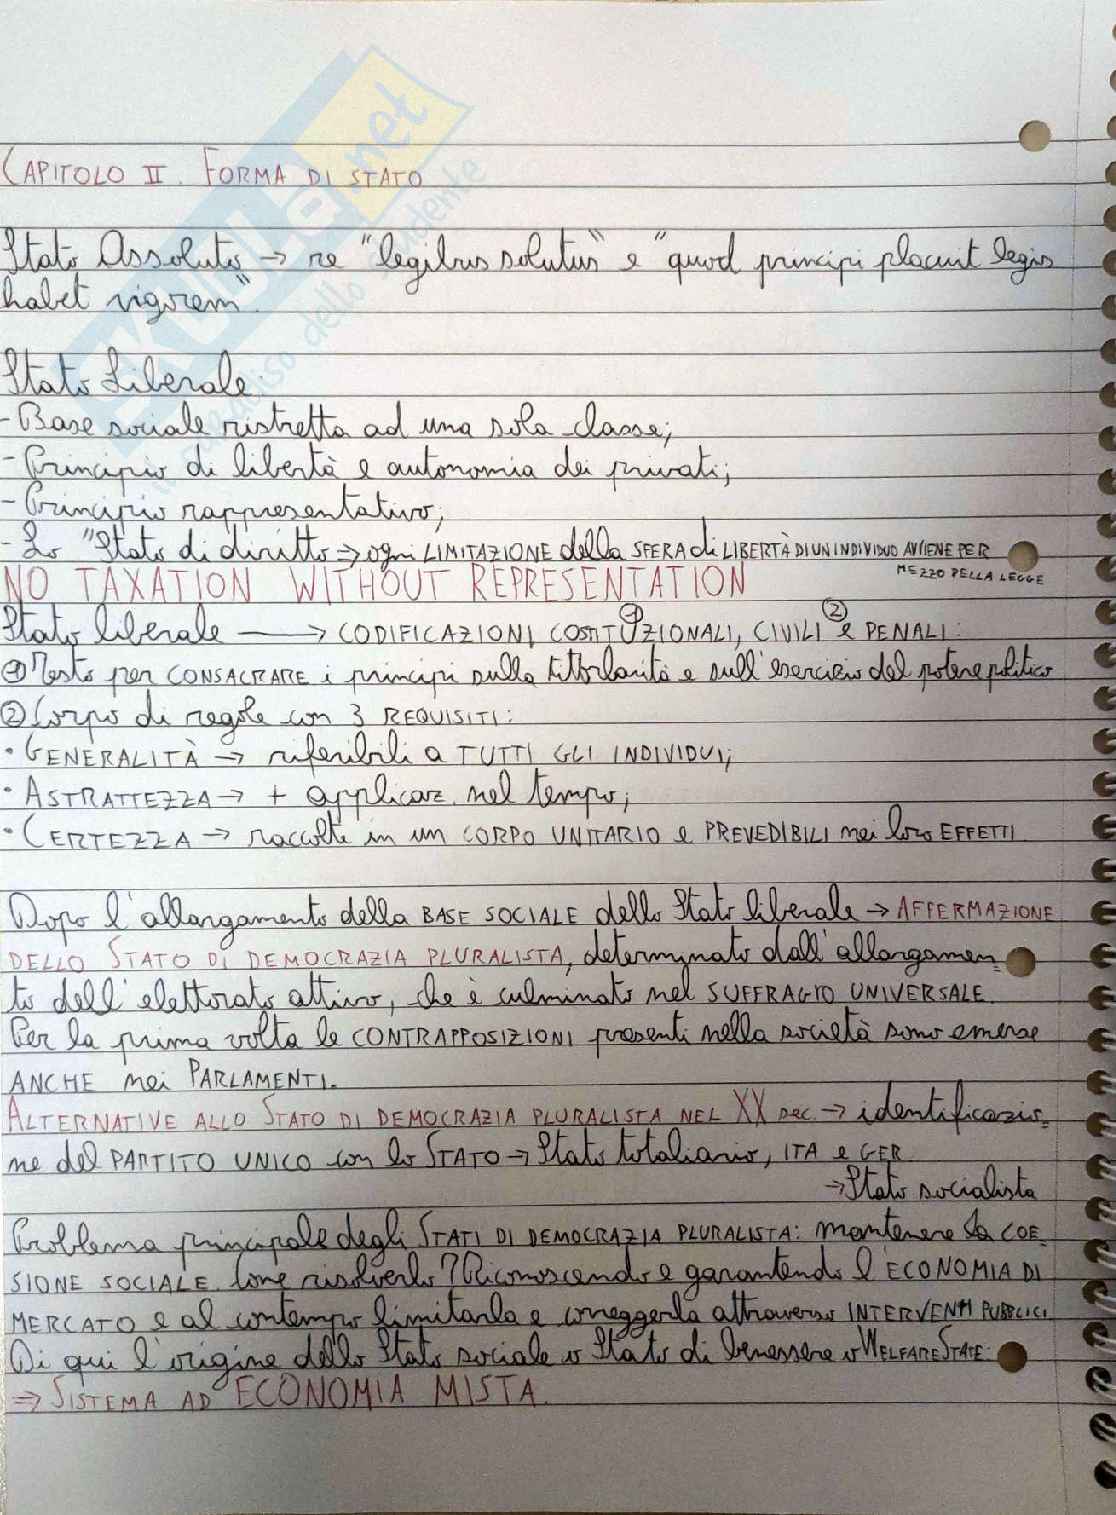 CAPITOLO II. FORMA DI STATO
Stato Assoluto → re "legibus solutus" e "quod principi placuit legis
habet vigorem".
Stato Liberale
- Base sociale ristretta ad una sola classe;
- Principio di libertà e autonomia dei privati;
- Principio rappresentativo;
- Lo "Stato di diritto → ogni LIMITAZIONE della SFERA di LIBERTÀ DI UN INDIVIDUO AVVIENE PER
MEZZO DELLA LEGGE
NO TAXATION WITHOUT REPRESENTATION
Stato liberale → CODIFICAZIONI COSTITUZIONALI, CIVILI e PENALI:
① Testo per CONSACRARE i principi sulla titolarità e sull'esercizio del potere politico
② Corpo di regole con 3 REQUISITI:
• GENERALITÀ → riferibili a TUTTI GLI INDIVIDUI;
• ASTRATTEZZA → + applicaz. nel tempo;
• CERTEZZA → raccolte in un CORPO UNITARIO e PREVEDIBILI nei loro EFFETTI
Dopo l'allargamento della BASE SOCIALE dello Stato liberale → AFFERMAZIONE
DELLO STATO DI DEMOCRAZIA PLURALISTA, determinato dall'allargamen
to dell'elettorato attivo, che è culminato nel SUFFRAGIO UNIVERSALE.
Per la prima volta le CONTRAPPOSIZIONI presenti nella società sono emerse
ANCHE nei PARLAMENTI.
ALTERNATIVE ALLO STATO DI DEMOCRAZIA PLURALISTA NEL XX sec. → identificazio=
ne del PARTITO UNICO con lo STATO → Stato totaliario, ITA e GER
→ Stato socialista
Problema principale degli STATI DI DEMOCRAZIA PLURALISTA: mantenere la COE
SIONE SOCIALE. Come risolverlo? Riconoscendo e garantendo l'ECONOMIA DI
MERCATO e al contempo limitarla e correggerla attraverso INTERVENTI PUBBLICI.
Di qui l'origine dello Stato sociale o Stato di benessere o WELFARE STATE:
⇒ SISTEMA AD ECONOMIA MISTA.